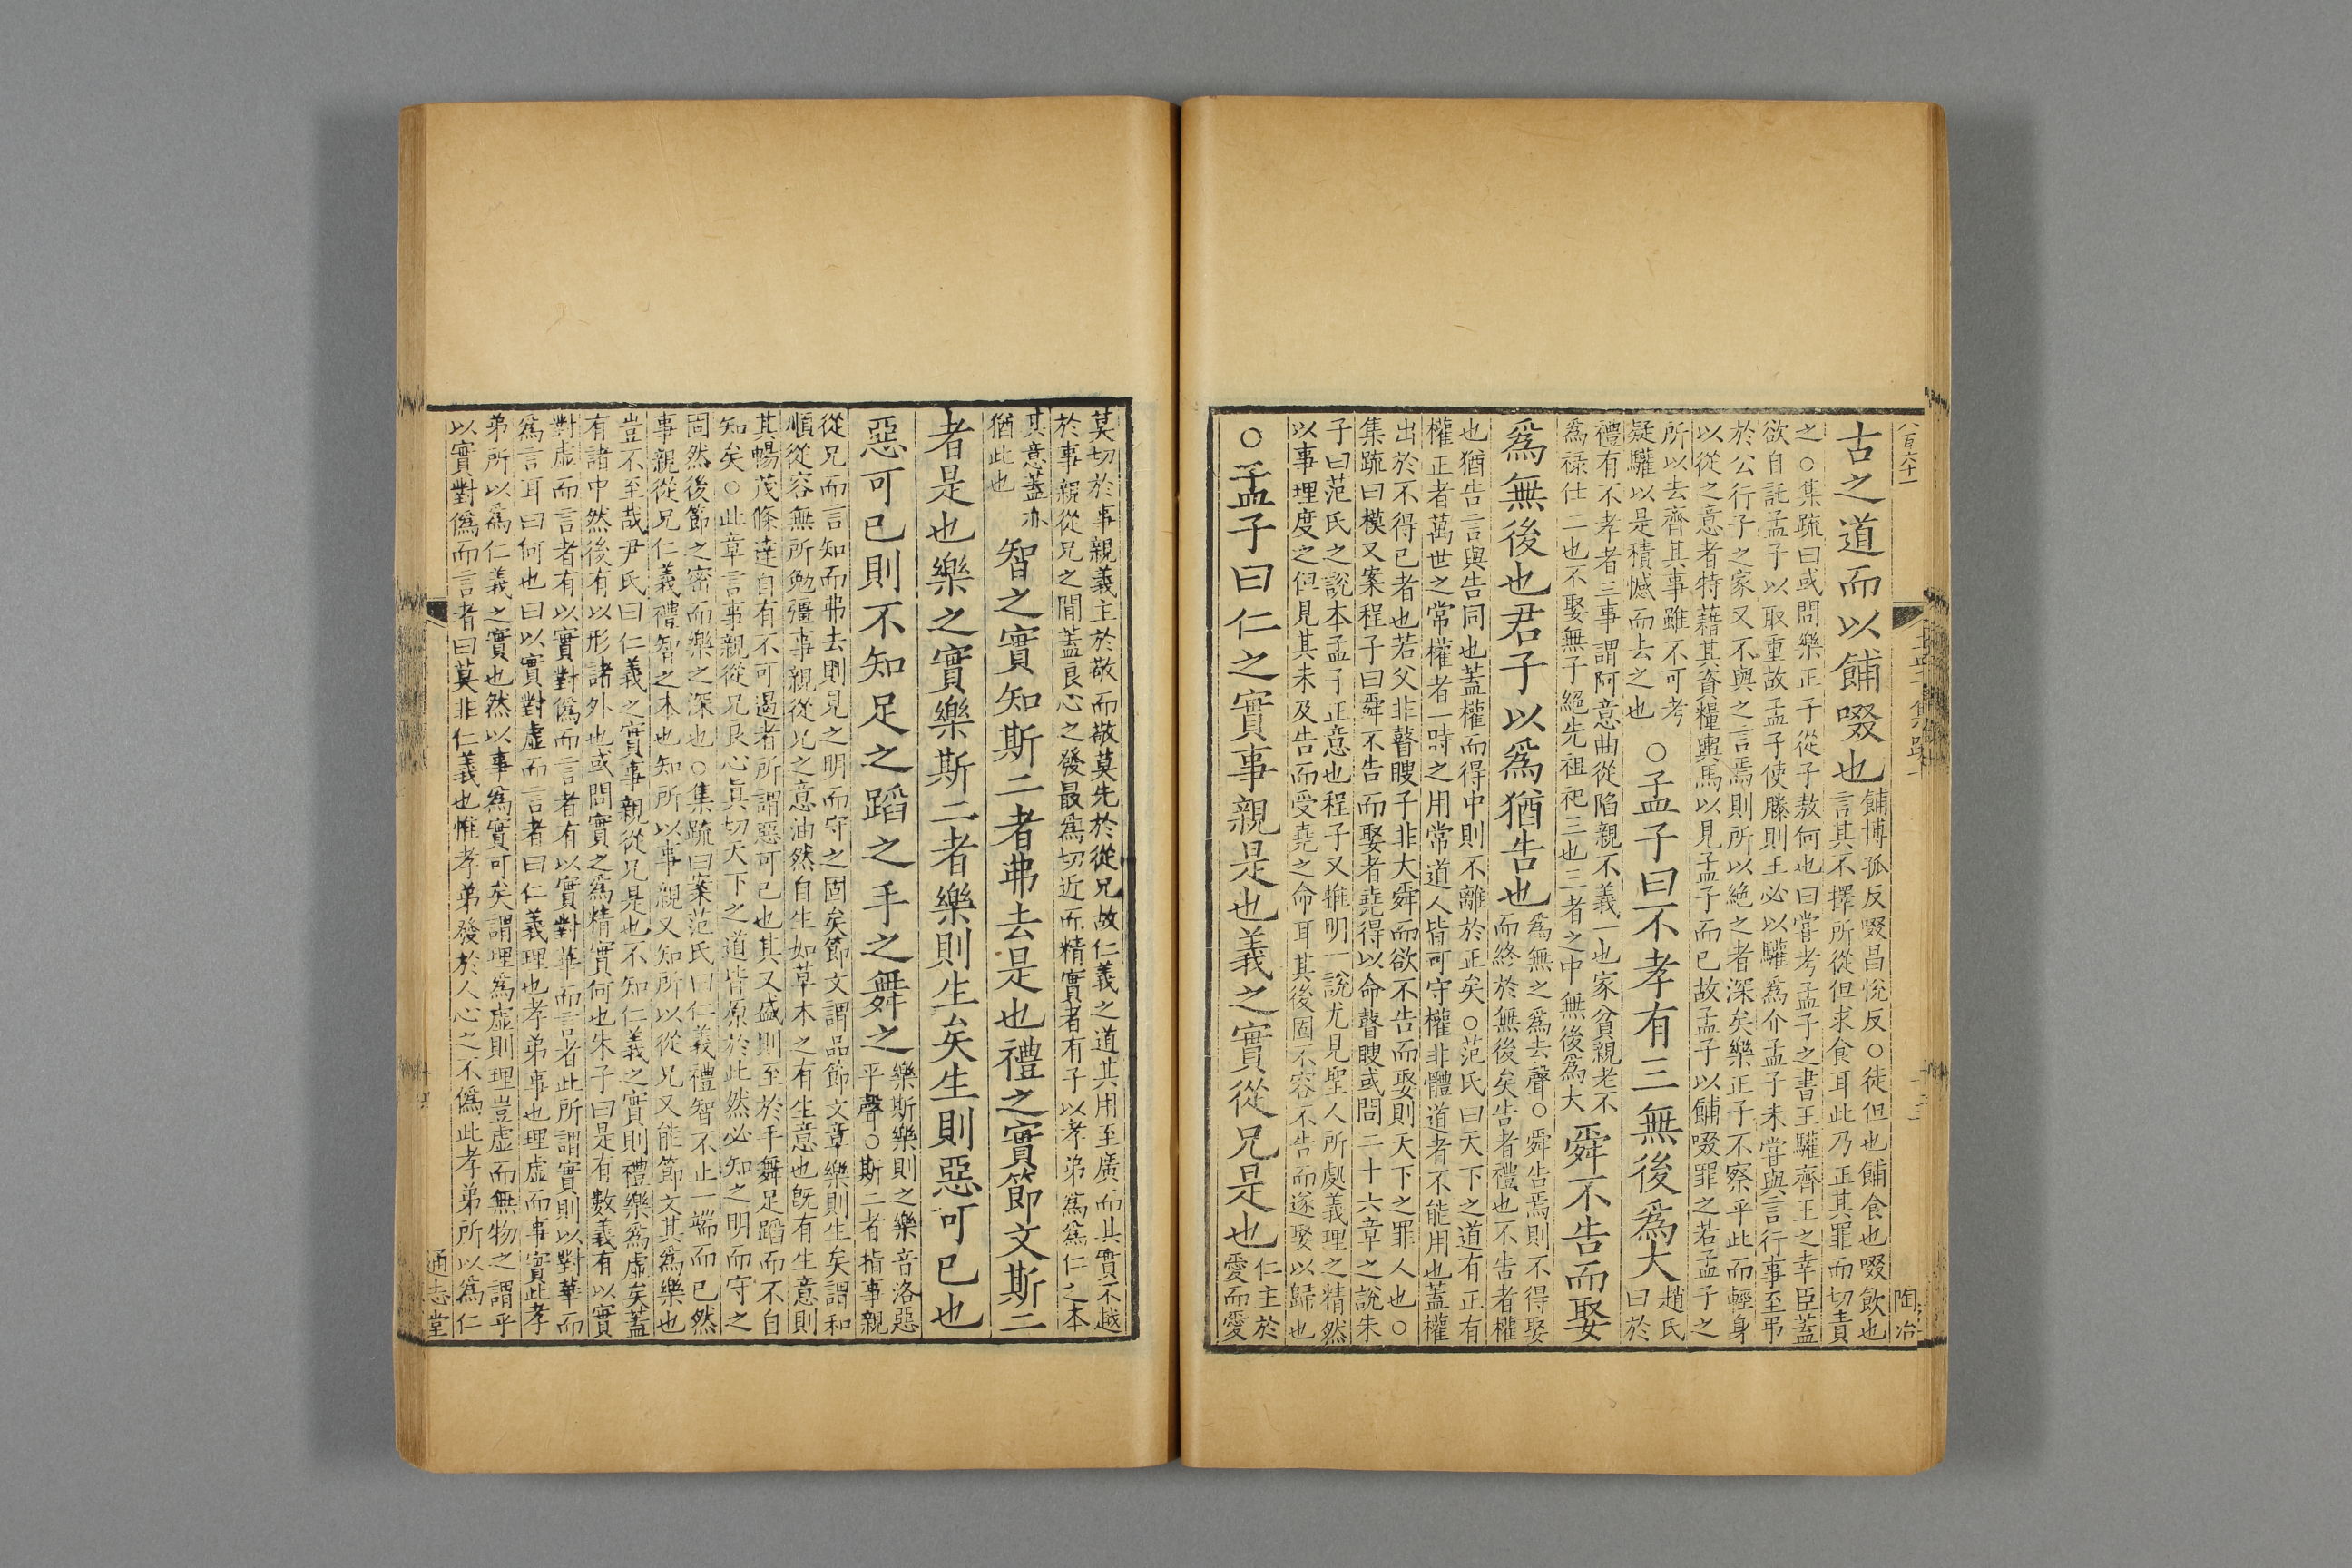 八百六十一
孟子集疏
陶冶
古之道而以餔啜也
餔博孤反啜昌悅反○徒但也餔食也啜飲也
言其不擇所從但求食耳此乃正其罪而切責
之○集疏曰或問樂正子從子敖何也曰嘗考孟子之書王驩齊王之幸臣蓋
欲自託孟子以取重故孟子使滕則王必以驩爲介孟子未嘗與言行事至弔
於公行子之家又不與之言焉則所以絶之者深矣樂正子不察乎此而輕身
以從之意者特藉其資糧輿馬以見孟子而已故孟子以餔啜罪之若孟子之
所以去齊其事雖不可考
疑驩以是積憾而去之也
○孟子曰不孝有三無後爲大
趙氏
曰於
禮有不孝者三事謂阿意曲從陷親不義一也家貧親老不
爲祿仕二也不娶無子絶先祖祀三也三者之中無後爲大
舜不告而娶
爲無後也君子以爲猶告也
爲無之爲去聲○舜告焉則不得娶
而終於無後矣告者禮也不告者權
也猶告言與告同也蓋權而得中則不離於正矣○范氏曰天下之道有正有
權正者萬世之常權者一時之用常道人皆可守權非體道者不能用也蓋權
出於不得已者也若父非瞽瞍子非大舜而欲不告而娶則天下之罪人也○
集疏曰模又案程子曰舜不告而娶者堯得以命瞽瞍或問二十六章之說朱
子曰范氏之說本孟子正意也程子又推明一說尤見聖人所處義理之精然
以事理度之但見其未及告而受堯之命耳其後固不容不告而遂娶以歸也
○孟子曰仁之實事親是也義之實從兄是也
仁主於
愛而愛
莫切於事親義主於敬而敬莫先於從兄故仁義之道其用至廣而其實不越
於事親從兄之間蓋良心之發最爲切近而精實者有子以孝弟爲爲仁之本
其意蓋亦
猶此也
智之實知斯二者弗去是也禮之實節文斯二
者是也樂之實樂斯二者樂則生矣生則惡可已也
惡可已則不知足之蹈之手之舞之
樂斯樂則之樂音洛惡
平聲○斯二者指事親
從兄而言知而弗去則見之明而守之固矣節文謂品節文章樂則生矣謂和
順從容無所勉彊事親從兄之意油然自生如草木之有生意也旣有生意則
其暢茂條達自有不可遏者所謂惡可已也其又盛則至於手舞足蹈而不自
知矣○此章言事親從兄良心眞切天下之道皆原於此然必知之明而守之
固然後節之密而樂之深也○集疏曰案范氏曰仁義禮智不止一端而已然
事親從兄仁義禮智之本也知所以事親又知所以從兄又能節文其爲樂也
豈不至哉尹氏曰仁義之實事親從兄是也不知仁義之實則禮樂爲虛矣蓋
有諸中然後有以形諸外也或問實之爲精實何也朱子曰是有數義有以實
對虛而言者有以實對僞而言者有以實對華而言者此所謂實則以對華而
爲言耳曰何也曰以實對虛而言者曰仁義理也孝弟事也理虛而事實此孝
弟所以爲仁義之實也然以事爲實可矣謂理爲虛則理豈虛而無物之謂乎
以實對僞而言者曰莫非仁義也惟孝弟發於人心之不僞此孝弟所以爲仁
通志堂